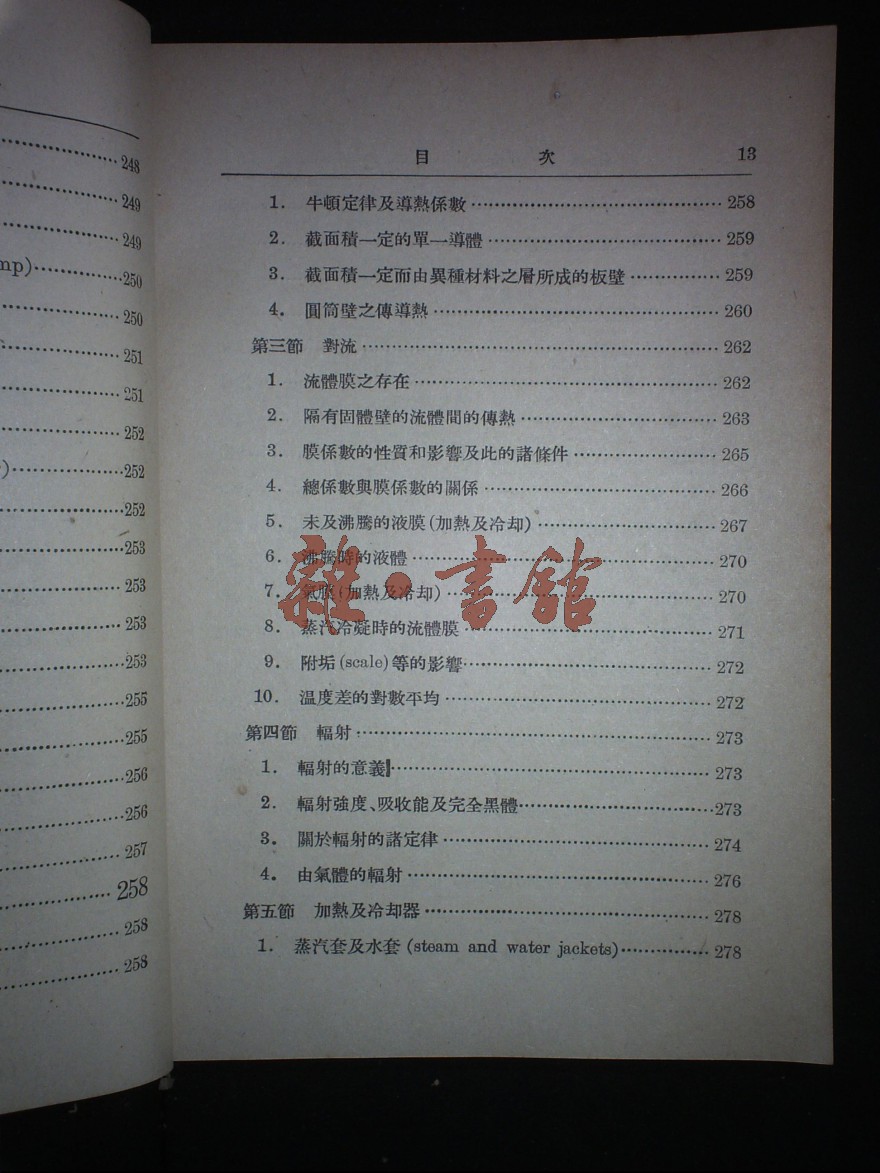 248
249
249
mp) 250
250
251
251
252
) 252
252
253
253
253
253
255
255
256
256
257
258
258
258
目 次 13
1. 牛頓定律及導熱係數 258
2. 截面積一定的單一導體 259
3. 截面積一定而由異種材料之層所成的板壁 259
4. 圓筒壁之傳導熱 260
第三節 對流 262
1. 流體膜之存在 262
2. 隔有固體壁的流體間的傳熱 263
3. 膜係數的性質和影響及此的諸條件 265
4. 總係數與膜係數的關係 266
5. 未及沸騰的液膜(加熱及冷却) 267
6. 沸騰時的液體 270
7. 氣膜(加熱及冷却) 270
8. 蒸汽冷凝時的流體膜 271
9. 附垢(scale)等的影響 272
10. 温度差的對數平均 272
第四節 輻射 273
1. 輻射的意義 273
2. 輻射強度、吸收能及完全黑體 273
3. 關於輻射的諸定律 274
4. 由氣體的輻射 276
第五節 加熱及冷却器 278
1. 蒸汽套及水套(steam and water jackets) 278
雜·書館